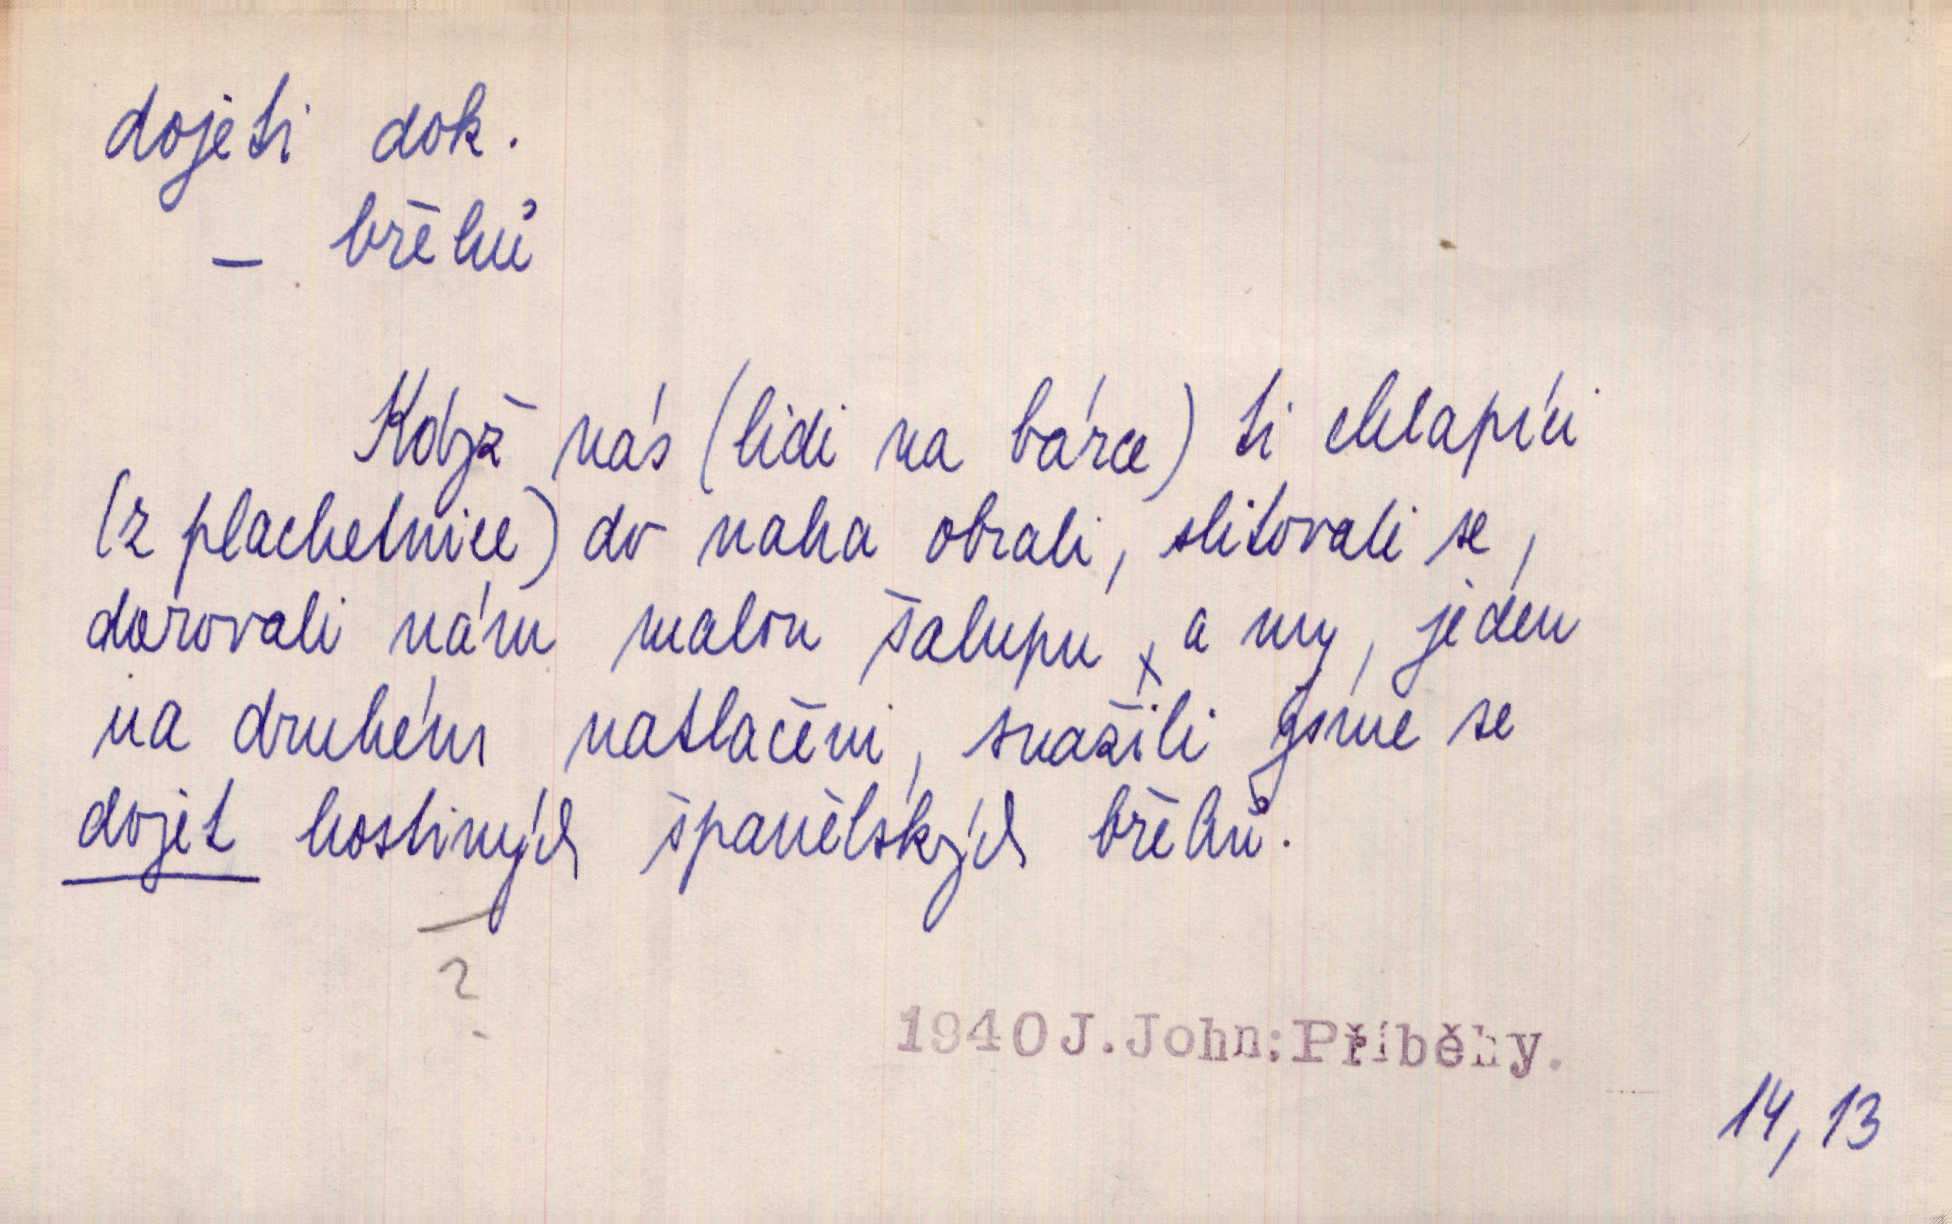 dojeti dok.
– břehů
Když nás (lidi na bárce) ti chlapíci
(z plachetnice) do naha obrali, slitovali se,
darovali nám malou šalupu x a my, jeden
na druhém natlačeni, snažili jsme se
dojet hostiných španělských břehů.
?
1940 J. John: Příběhy.
14, 13